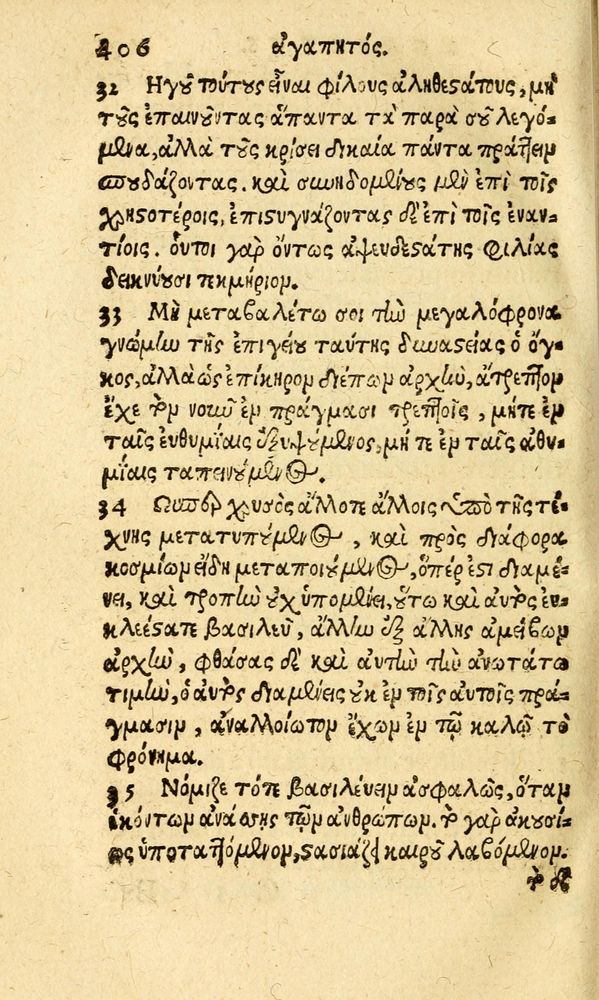 406 ἀγαπητός.
32 Ηγοῦ τούτους εἶναι φίλους ἀληθεστάτους, μὴ
τοὺς ἐπαινοῦντας ἅπαντα τὰ παρὰ σοῦ λεγό-
μενα, ἀλλὰ τοὺς κρίσει δικαία πάντα πράττειν
σπουδάζοντας. καὶ συνηδομένους μὲν ἐπὶ τοῖς
χρηστοτέροις, ἐπιστυγνάζοντας δὲ ἐπὶ τοῖς ἐναν-
τίοις. οὗτοι γὰρ ὄντως ἀψευδεστάτης φιλίας
δεικνύουσι τεκμήριον.
33 Μὴ μεταβαλέτω σοι τὴν μεγαλόφρονα
γνώμην τῆς ἐπιγείου ταύτης δυναστείας ὁ ὄγ-
κος, ἀλλὰ ὡς ἐπίκηρον διέπων ἀρχὴν, ἄτρεπτον
ἔχε τὸν νοῦν ἐν πράγμασι τρεπτοῖς, μήτε ἐν
ταῖς ἐνθυμίαις ἐξυψούμενος, μή τε ἐν ταῖς ἀθυ-
μίαις ταπεινούμενος.
34 Ωσπερ χρυσὸς ἄλλοτε ἄλλοις ὑπὸ τῆς τέ-
χνης μετατυπούμενος, καὶ πρὸς διάφορα
κοσμίων εἴδη μεταποιούμενος, ὅπέρ ἐστι διαμέ-
νει, καὶ τροπὴν οὐχ ὑπομένει, οὕτω καὶ αὐτὸς εὐ-
κλεέστατε βασιλεῦ, ἄλλην ἐξ ἄλλης ἀμείβων
ἀρχὴν, φθάσας δὲ καὶ αὐτὴν τὴν ἀνωτάτω
τιμὴν, ὁ αὐτὸς διαμένεις οὐκ ἐν τοῖς αὐτοῖς πρά-
γμασιν, ἀναλλοίωτον ἔχων ἐν τῷ καλῷ τὸ
φρόνημα.
35 Νόμιζε τότε βασιλεύειν ἀσφαλῶς, ὅταν
ἑκόντων ἀνάσσης τῶν ἀνθρώπων. τὸ γὰρ ἀκουσί-
ως ὑποταττόμενον, στασιάζει καιροῦ λαβόμενον.
τὸ δὲ